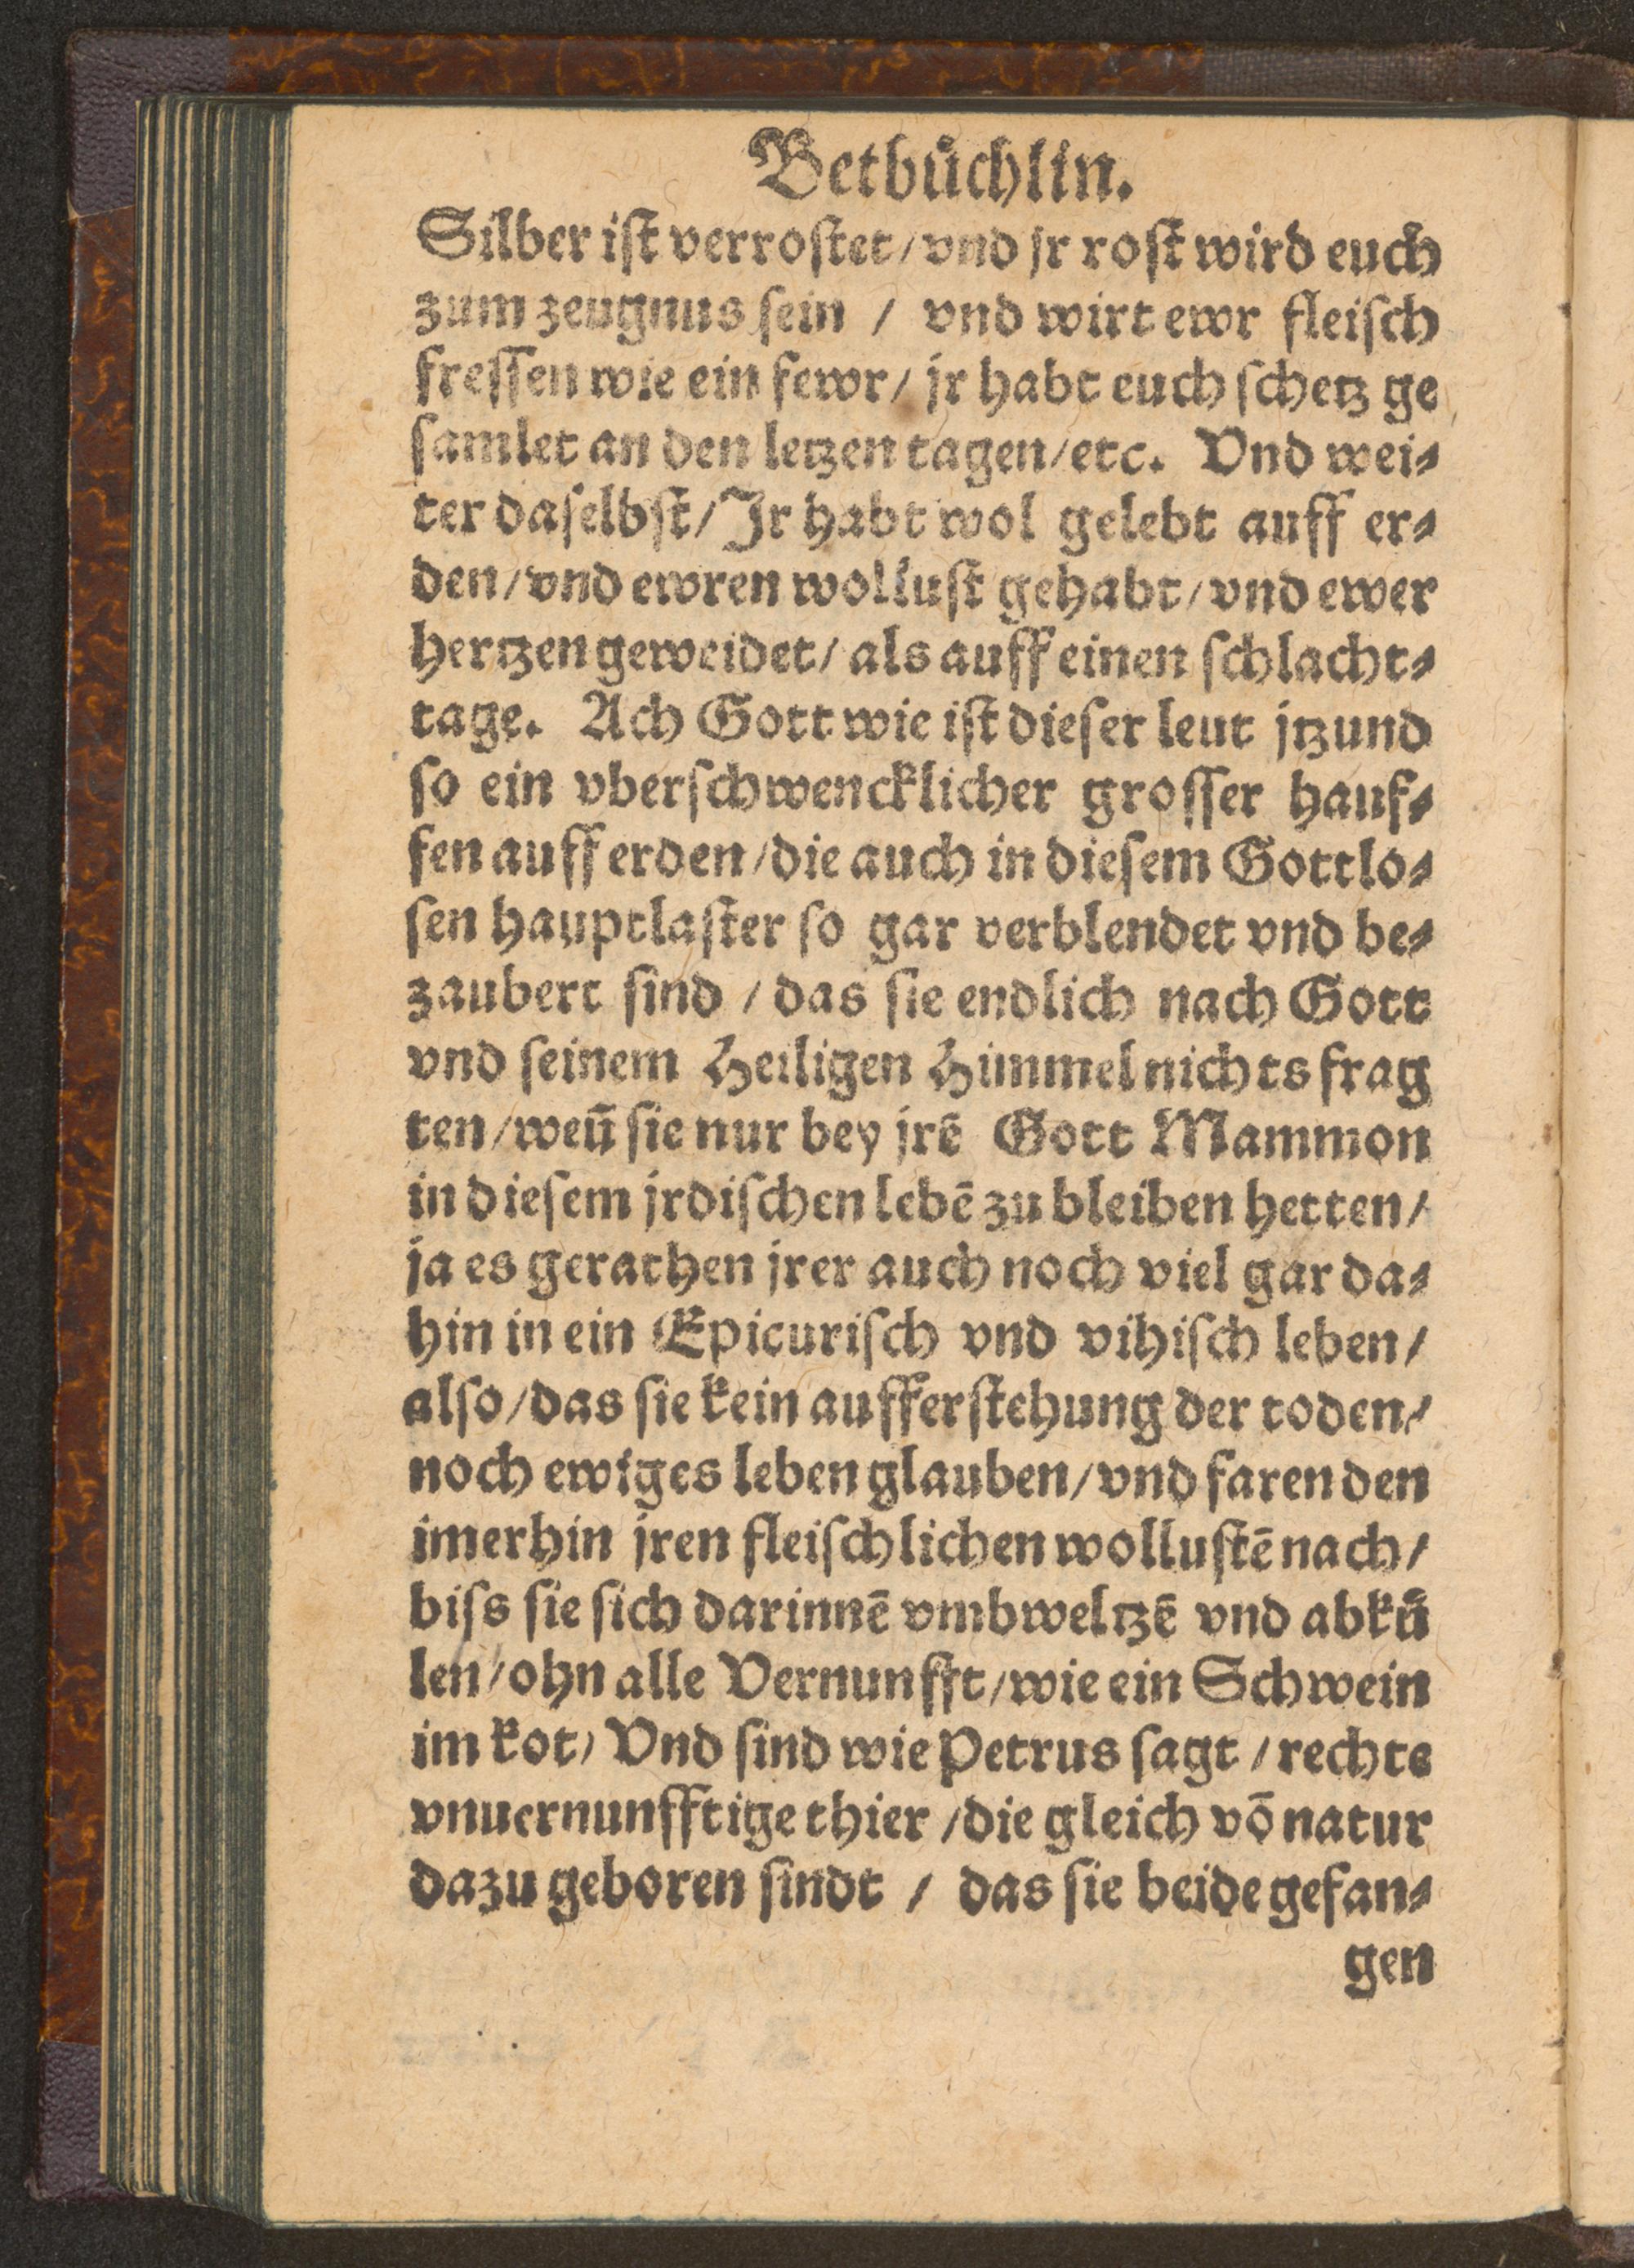 Betbuͤchlin.
Silber iſt verroſtet / vnd jr roſt wird euch
zum zeugnus ſein / vnd wirt ewr fleiſch
freſſen wie ein fewr / jr habt euch ſchetz ge
ſamlet an den letzen tagen / etc. Vnd wei⸗
ter daſelbſt / Jr habt wol gelebt auff er⸗
den / vnd ewren wolluſt gehabt / vnd ewer
hertzen geweidet / als auff einen ſchlacht⸗
tage. Ach Gott wie iſt dieſer leut jtzund
ſo ein vberſchwencklicher groſſer hauf⸗
fen auff erden / die auch in dieſem Gottlo⸗
ſen hauptlaſter ſo gar verblendet vnd be⸗
zaubert ſind / das ſie endlich nach Gott
vnd ſeinem Heiligen Himmel nichts frag
ten / weñ ſie nur bey jrē Gott Mammon
in dieſem jrdiſchen lebē zu bleiben hetten /
ja es gerathen jrer auch noch viel gar da⸗
hin in ein Epicuriſch vnd vihiſch leben /
alſo / das ſie kein aufferſtehung der toden /
noch ewiges leben glauben / vnd faren den
imerhin jren fleiſchlichen wolluſtē nach /
biſs ſie ſich darinnē vmbweltzē vnd abkuͤ
len / ohn alle Vernunfft / wie ein Schwein
im kot / Vnd ſind wie Petrus ſagt / rechte
vnuernunfftige thier / die gleich vō natur
dazu geboren ſindt / das ſie beide gefan⸗
gen